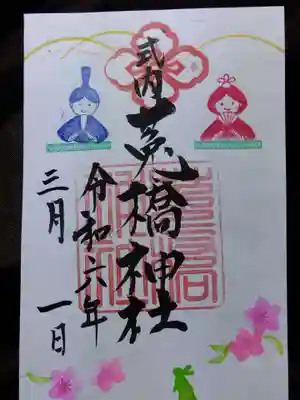 式内
莵橋神社
令和六年
三月一日